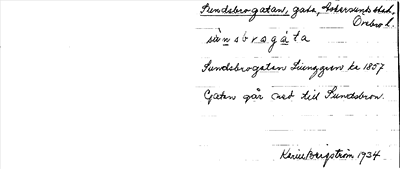 Sundsbrogatan, gata, Askersunds stad,
Örebro l.
sùnsbrogáta
Sundsbrogatan Ljunggren ka 1857
Gatan går ned till Sundsbron.
Karin Bergström 1934